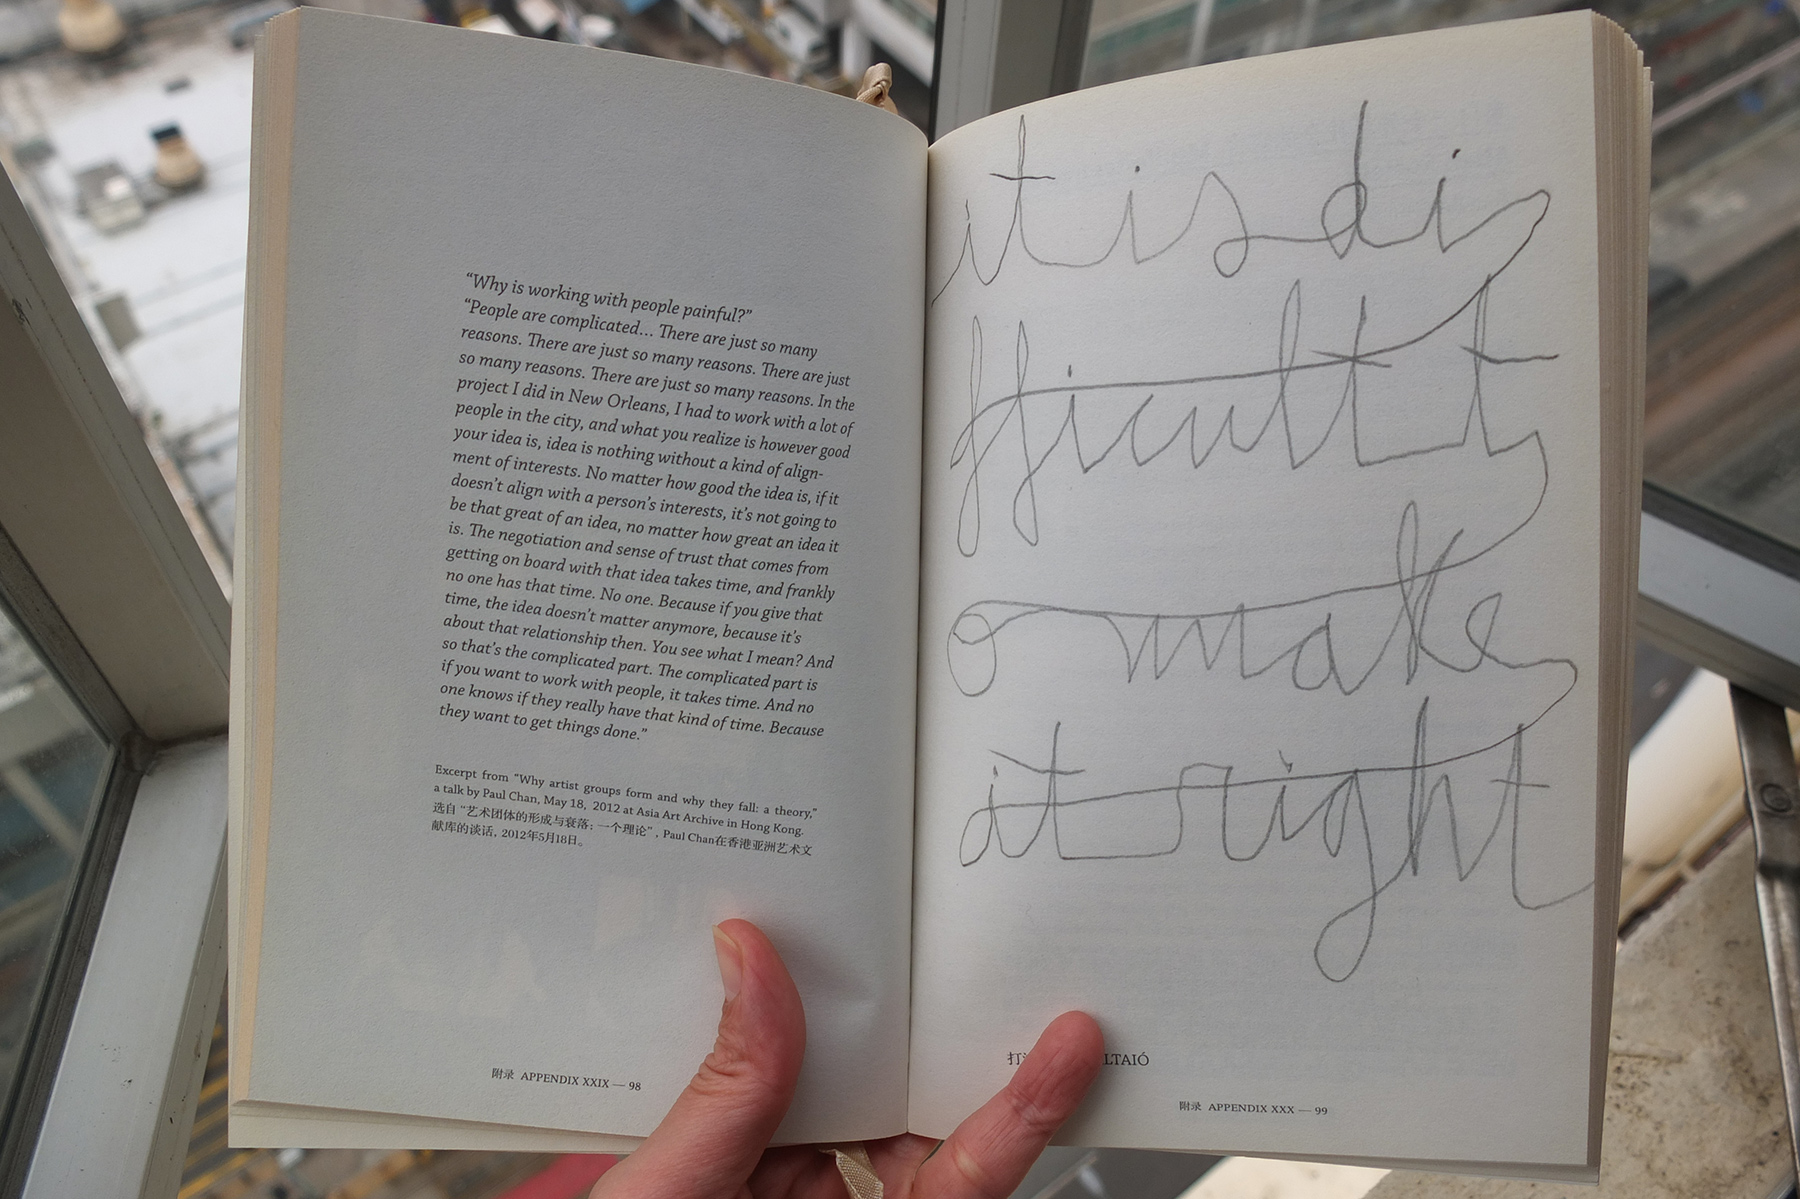 “Why is working with people painful?”
“People are complicated... There are just so many
reasons. There are just so many reasons. There are just
so many reasons. There are just so many reasons. In the
project I did in New Orleans, I had to work with a lot of
people in the city, and what you realize is however good
your idea is, idea is nothing without a kind of align-
ment of interests. No matter how good the idea is, if it
doesn’t align with a person’s interests, it’s not going to
be that great of an idea, no matter how great an idea it
is. The negotiation and sense of trust that comes from
getting on board with that idea takes time, and frankly
no one has that time. No one. Because if you give that
time, the idea doesn’t matter anymore, because it’s
about that relationship then. You see what I mean? And
so that’s the complicated part. The complicated part is
if you want to work with people, it takes time. And no
one knows if they really have that kind of time. Because
they want to get things done.”
Excerpt from “Why artist groups form and why they fall: a theory,”
a talk by Paul Chan, May 18, 2012 at Asia Art Archive in Hong Kong.
选自“艺术团体的形成与衰落：一个理论”，Paul Chan在香港亚洲艺术文
献库的谈话，2012年5月18日。
附录 APPENDIX XXIX — 98
it is di
fficult t
o make
it right
LTAIÓ
附录 APPENDIX XXX — 99